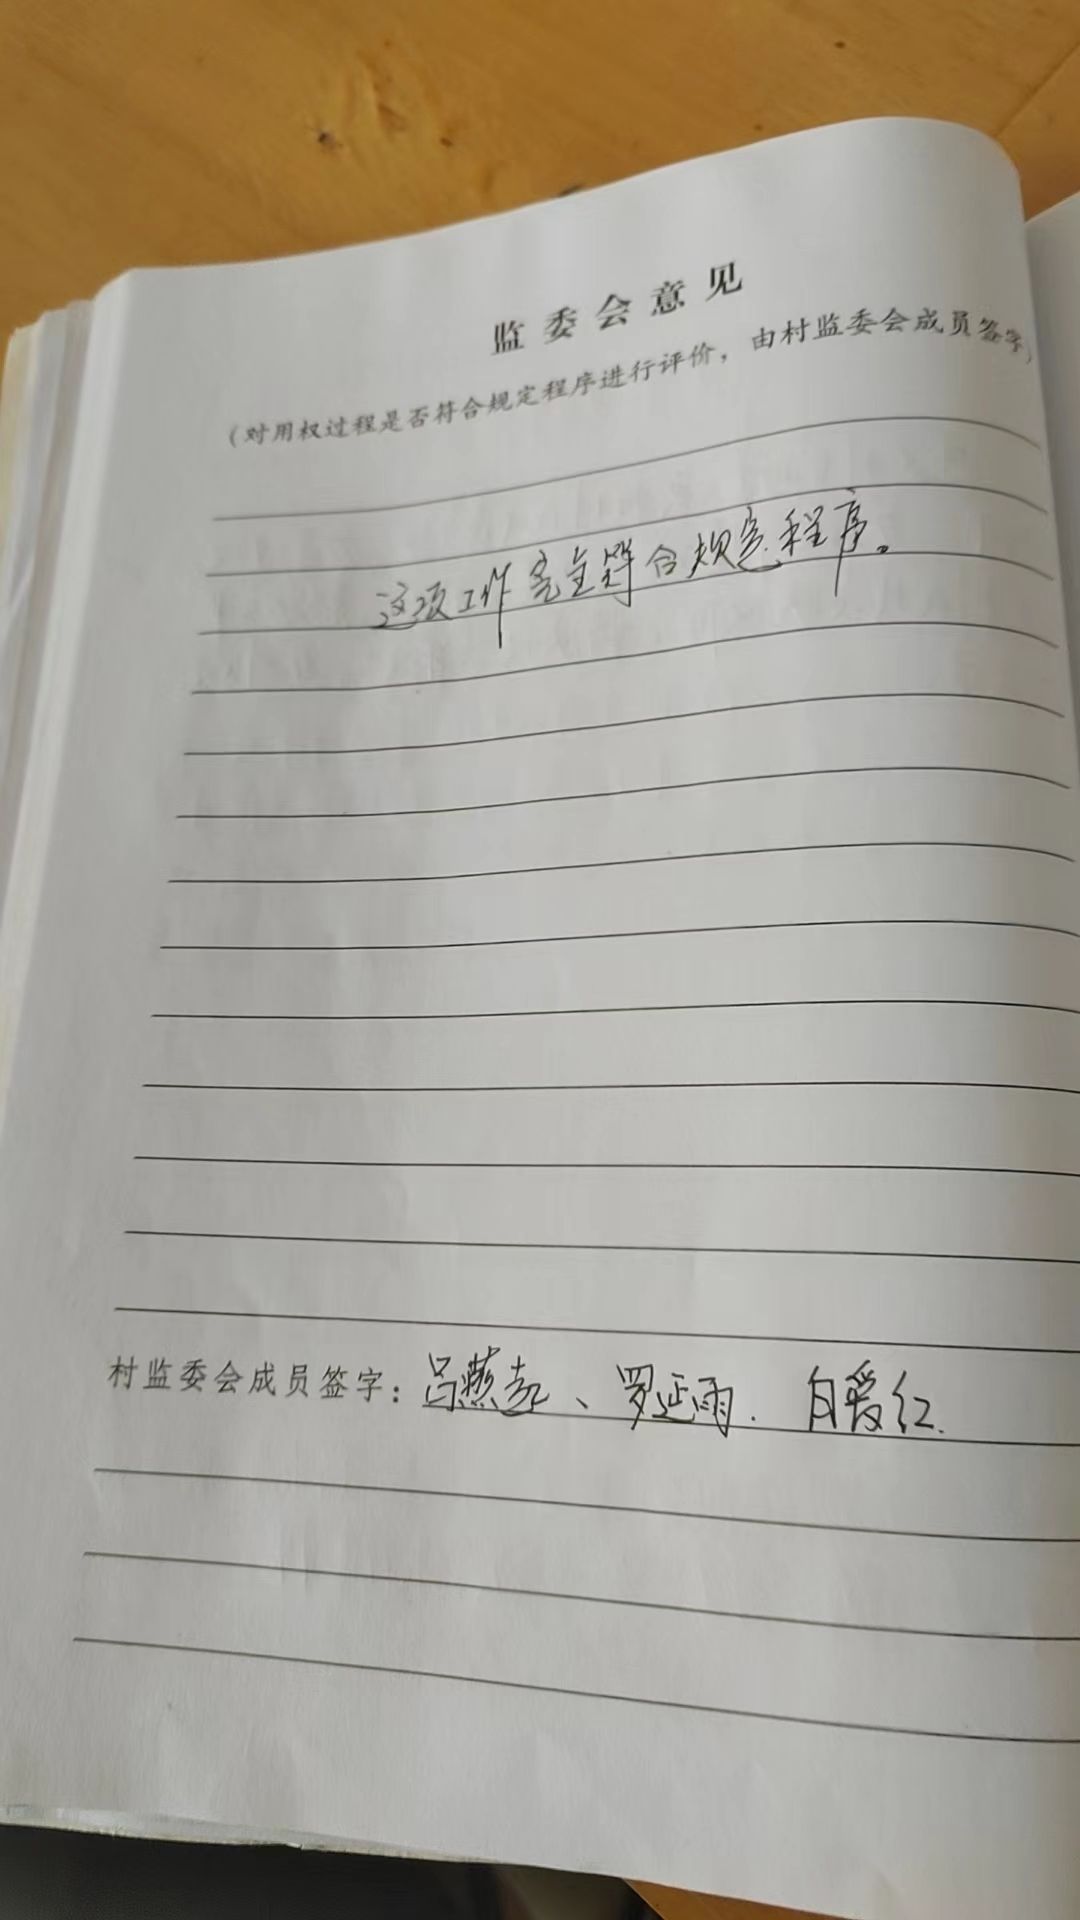 监委会意见
（对用权过程是否符合规定程序进行评价，由村监委会成员签字）
这项工作完全符合规定程序。
村监委会成员签字：吕燕、罗延雨.白爱红.